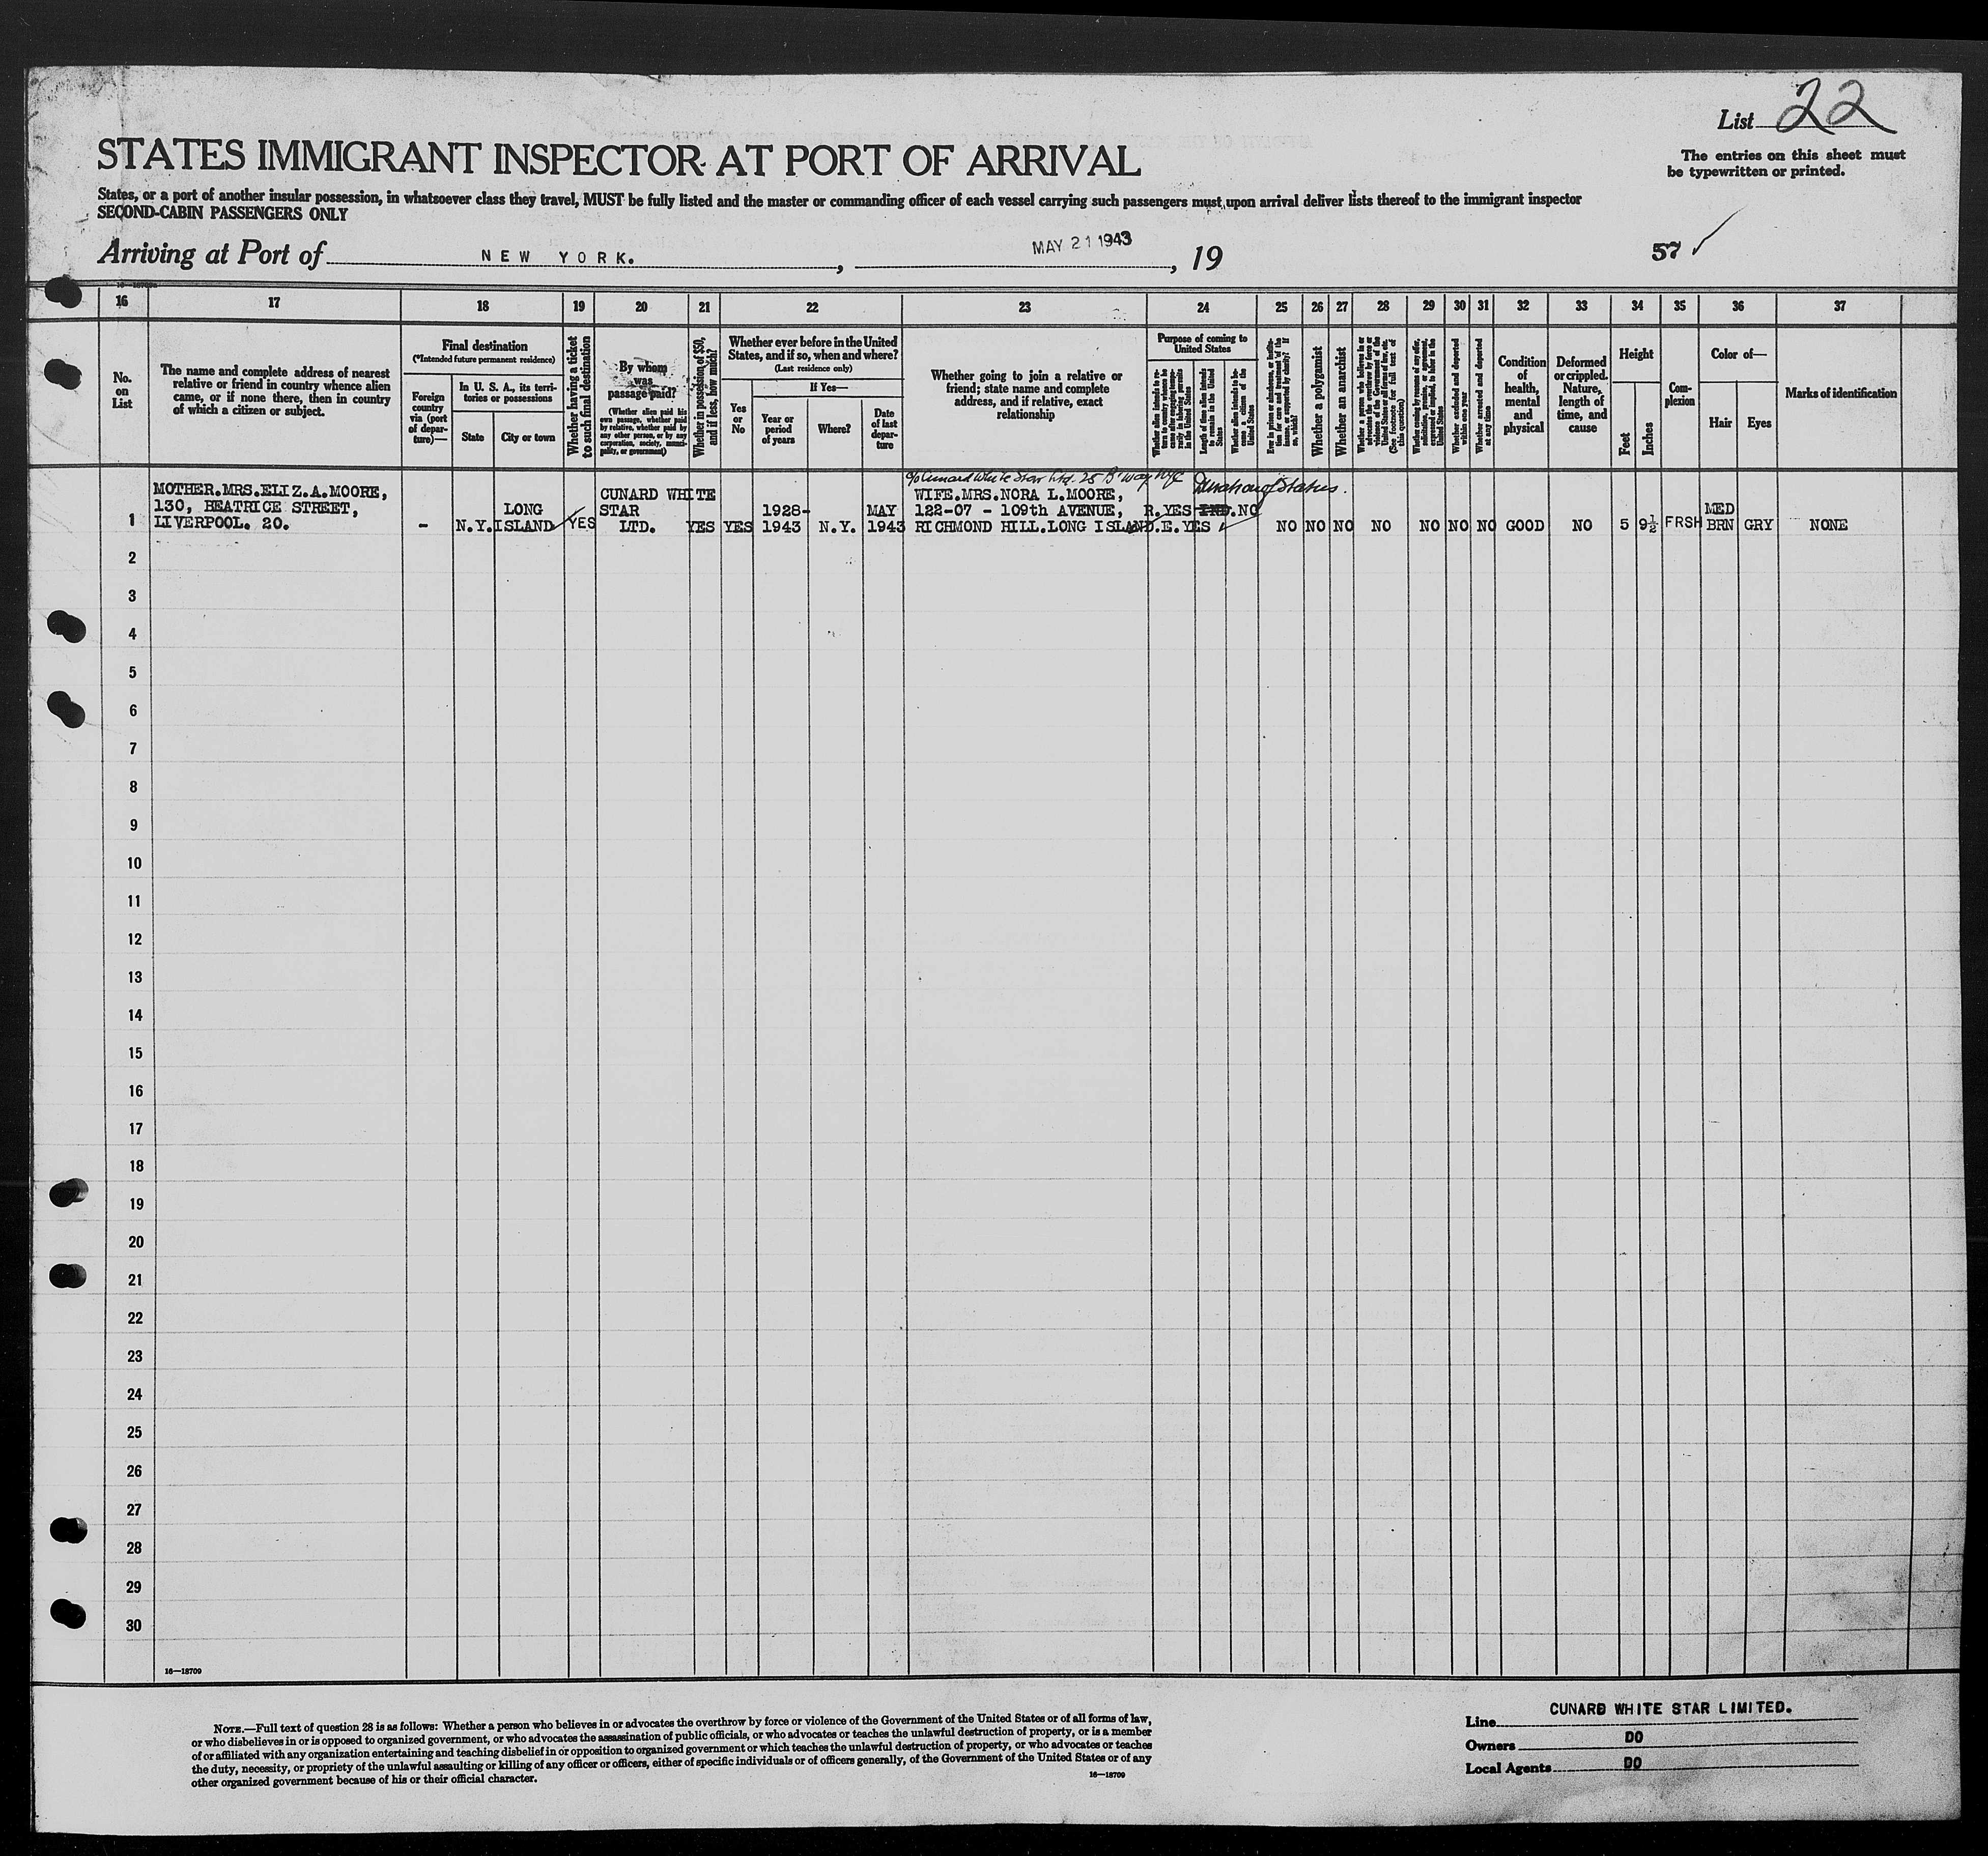 List 22
STATES IMMIGRANT INSPECTOR AT PORT OF ARRIVAL
The entries on this sheet must
be typewritten or printed.
States, or a port of another insular possession, in whatsoever class they travel, MUST be fully listed and the master or commanding officer of each vessel carrying such passengers must upon arrival deliver lists thereof to the immigrant inspector
SECOND-CABIN PASSENGERS ONLY
Arriving at Port of NEW YORK. , MAY 21 1943 , 19
57 ✓
16 17 18 19 20 21 22 23 24 25 26 27 28 29 30 31 32 33 34 35 36 37
No. on List
The name and complete address of nearest
relative or friend in country whence alien
came, or if none there, then in country
of which a citizen or subject.
Final destination
(*Intended future permanent residence)
Foreign country via (port of departure)—
In U. S. A., its territories or possessions
State
City or town
Whether having a ticket to such final destination
By whom was passage paid?
(Whether alien paid his own passage, whether paid by relative, whether paid by any other person, or by any corporation, society, municipality, or government)
Whether in possession of $50, and if less, how much?
Whether ever before in the United
States, and if so, when and where?
(Last residence only)
Yes or No
If Yes—
Year or period of years
Where?
Date of last departure
Whether going to join a relative or
friend; state name and complete
address, and if relative, exact
relationship
Purpose of coming to
United States
Length of time alien intends to remain in the United States
Whether alien intends to become a citizen of the United States
Whether a polygamist
Whether an anarchist
(See footnote for full text of this question)
Whether excluded and deported within one year
Whether arrested and deported at any time
Condition of health, mental and physical
Deformed or crippled. Nature, length of time, and cause
Height
Feet
Inches
Complexion
Color of—
Hair
Eyes
Marks of identification
c/o Cunard White Star Ltd. 25 B'way NYC
Duration of Status.
MOTHER.MRS.ELIZ.A.MOORE,
130, BEATRICE STREET,
LIVERPOOL. 20.
1
-
N.Y.
LONG
ISLAND
YES
CUNARD WHITE
STAR
LTD.
YES
YES
1928-
1943
N.Y.
MAY
1943
WIFE.MRS.NORA L.MOORE,
122-07 - 109th AVENUE,
RICHMOND HILL.LONG ISLAND.
R.YES IND.NO
E.YES
NO NO NO NO NO NO NO GOOD NO 5 9½ FRSH
MED
BRN GRY NONE
2
3
4
5
6
7
8
9
10
11
12
13
14
15
16
17
18
19
20
21
22
23
24
25
26
27
28
29
30
16—18709
NOTE.—Full text of question 28 is as follows: Whether a person who believes in or advocates the overthrow by force or violence of the Government of the United States or of all forms of law,
or who disbelieves in or is opposed to organized government, or who advocates the assassination of public officials, or who advocates or teaches the unlawful destruction of property, or is a member
of or affiliated with any organization entertaining and teaching disbelief in or opposition to organized government or which teaches the unlawful destruction of property, or who advocates or teaches
the duty, necessity, or propriety of the unlawful assaulting or killing of any officer or officers, either of specific individuals or of officers generally, of the Government of the United States or of any
other organized government because of his or their official character.
16—18709
Line CUNARD WHITE STAR LIMITED.
Owners DO
Local Agents DO